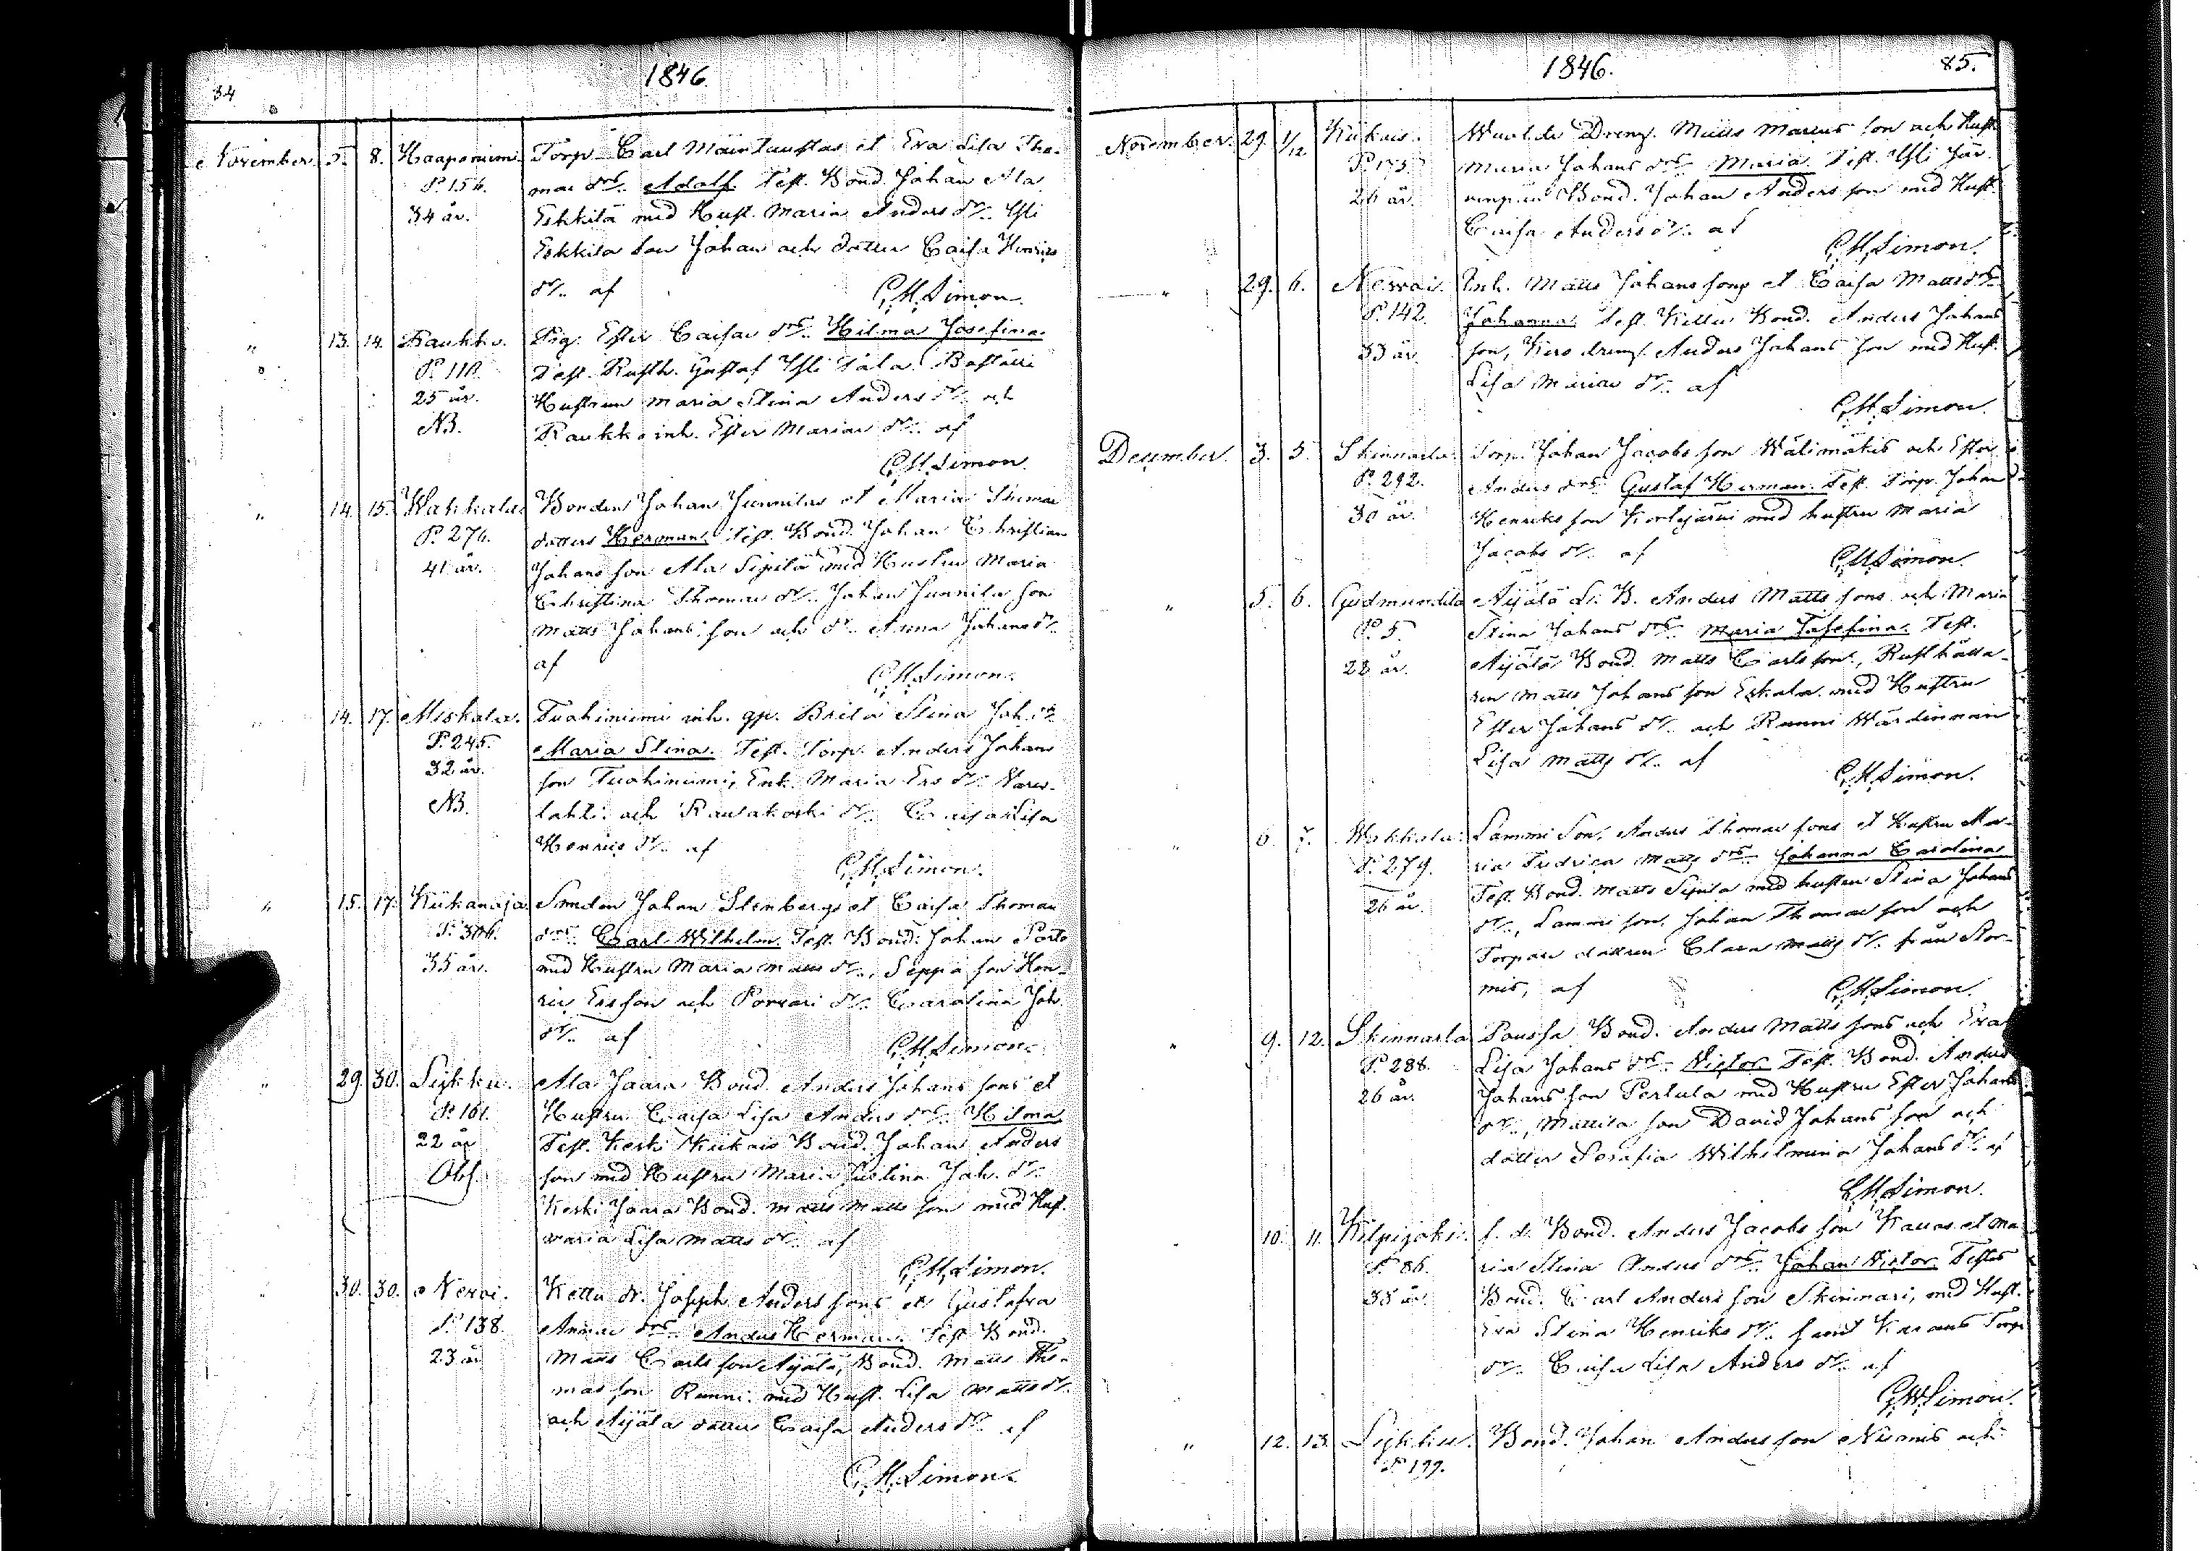 84
1846.
November. 5. 8. Haaponiemi. Torp. Carl Mäntaustas et Eva Lisa Tho-
P. 156. mae drs. Adolf. Test. Bond. Johan Ala
34 år. Eskkilä med Hust. Maria Anders dr. Yli
Eskkila son Johan och dotter Caisa Henrics
dr. af
C. M. Simon.
" 13. 14. Raukko. Pig. Ester Caisae drs. Hilma Josefina.
P. 110. Test. Rusth. Gustaf Yli
25 år. Hustrun Maria Stina Anders dr. och
NB. Raukko inh. Ester Mariae dr. af
C. M. Simon.
" 14. 15. Wahkala. Bonden Johan Junnilas et Maria Thomae
P. 276. dotters Herman. Test. Bond. Johan Christian
41 år. Johans son Ala Sipilä med Hustru Maria
Christina Thomae dr. Johan Junnila son
Matts Johans son och dr. Anna Johans dr.
af
C. M. Simon.
" 14. 17. Miskala. Tuohiniemi inh. gp. Brita Stina Joh. drs
P. 245. Maria Stina. Test. Torp. Anders Johans
32 år. son Tuohiniemi, Enk. Maria Ers dr.
NB. lahti och Rautakoski dr. Caisa Lisa
Henrics dr. af
C. M. Simon.
" 15. 17. Kiikanoja. Smeden Johan Stenbergs et Caisa Thomae
P. 306. drs. Carl Wilhelm. Test. Bond. Johan
35 år. med Hustru Maria Matts dr., Seppä son Hen-
ric Ersson och Porvari dr. Carolina Joh.
dr. af
C. M. Simon.
" 29. 30. Liykku. Ala Jaara Bond. Anders Johans sons et
P. 161. Hustru Caisa Lisa Anders drs. Hilma
22 år Test. Keski Kiikais Bond. Johan Anders
Obs. son med Hustru Maria Justina Joh. dr.
Keski Jaara Bond. Matts Matts son med Hust.
Maria Lisa Matts dr. af
C. M. Simon.
" 30. 30. Nervoi. Kettu dr. Joseph Anders sons et Gustafva
P. 138. Annae drs. Anders Herman. Test. Bond.
23 år Matts Carls son Äijälä, Bond. Matts Tho-
mas son Runni med Hust. Lisa Matts dr.
och Äijälä dotter Caisa Anders dr. af
C. M. Simon.
1846.
85.
November. 29. 1/12 Kiikais. Dreng. Matts Marcus son och Hust
P. 175. Maria Johans drs. Maria. Test. Yli Jär-
26 år. Bond. Johan Anders son med Hust.
Caisa Anders dr. af
C. M. Simon.
" 29. 6. Nervoi. Inh. Matts Johans sons et Caisa Matts drs
P. 142. Johanna. Test. Kettu Bond. Anders Johans
33 år. son, dreng. Anders Johans son med Hust.
Lisa Mariae dr. af
C. M. Simon.
December. 3. 5. Skinnarla. Torp. Johan Jacobs son Wälimäkis och Ester
P. 292. Anders drs. Gustaf Herman. Test. Torp. Johan
30 år. Henriks son Kortejärvi med hustru Maria
Jacobs dr. af
C. M. Simon.
" 5. 6. Gudmundila Äijälä B. Anders Matts sons och Maria
P. 5. Stina Johans drs. Maria Josefina. Test.
22 år. Äijälä Bond. Matts Carls son, Rusthålla-
ren Matts Johans son Eskala med Hustru
Ester Johans dr. och Runni Wärdinnan
Lisa Matts dr. af
C. M. Simon.
" 6. 7. Wahkala. Lammi Son, Anders Thomae sons et Hustru Ma-
P. 279. ria Fredrica Matts drs. Johanna Carolina
26 år. Test. Bond. Matts Sipila med hustru Stina Johans
dr., Lammi son, Johan Thomae son och
Torpare dottren Clara Matts dr. från Stor-
mis, af
C. M. Simon.
" 9. 12. Skinnarla Poussa Bond. Anders Matts sons och Eva
P. 288. Lisa Johans drs. Victor. Test. Bond. Anders
26 år. Johans son Pertula med Hustru Ester Johans
dr., Mattila son David Johans son och
dotter Serafia Wilhelmina Johans dr. af
C. M. Simon.
" 10. 11. Kilpijoki. f. d. Bond. Anders Jacobs son Karas et Ma
P. 86. ria Stina Anders drs. Johan Victor. Testes
35 år. Bond. Carl Anders son Skinnari, med Hust.
Eva Stina Henriks dr. samt Torp
dr. Caisa Lisa Anders dr. af
C. M. Simon.
" 12. 13. Liykku. Bond. Johan Anders son Niemis och
P. 199.